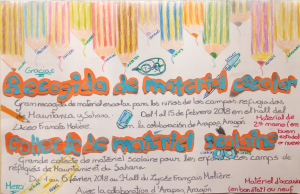 Gracias
Recogida de material escolar
Gran recogida de material escolar para los niños de los campos refugiados
de Mauritania y Sahara. Del 1 al 15 de febrero 2018 en el Hall del
Liceo Francés Molière. con la colaboración de Arapaz Aragón.
Material de
2ª mano (en
buen
estado)
Collecte de matériel scolaire
Grande collecte de matériel scolaire pour les enfants des camps de
réfugiés de Mauritanie et du Sahara.
Du 1 au 15 février 2018 au Hall du Lycée Français Molière
Avec la collaboration d'Arapaz Aragón
Matériel d'occasion
(en bon état)
Merci